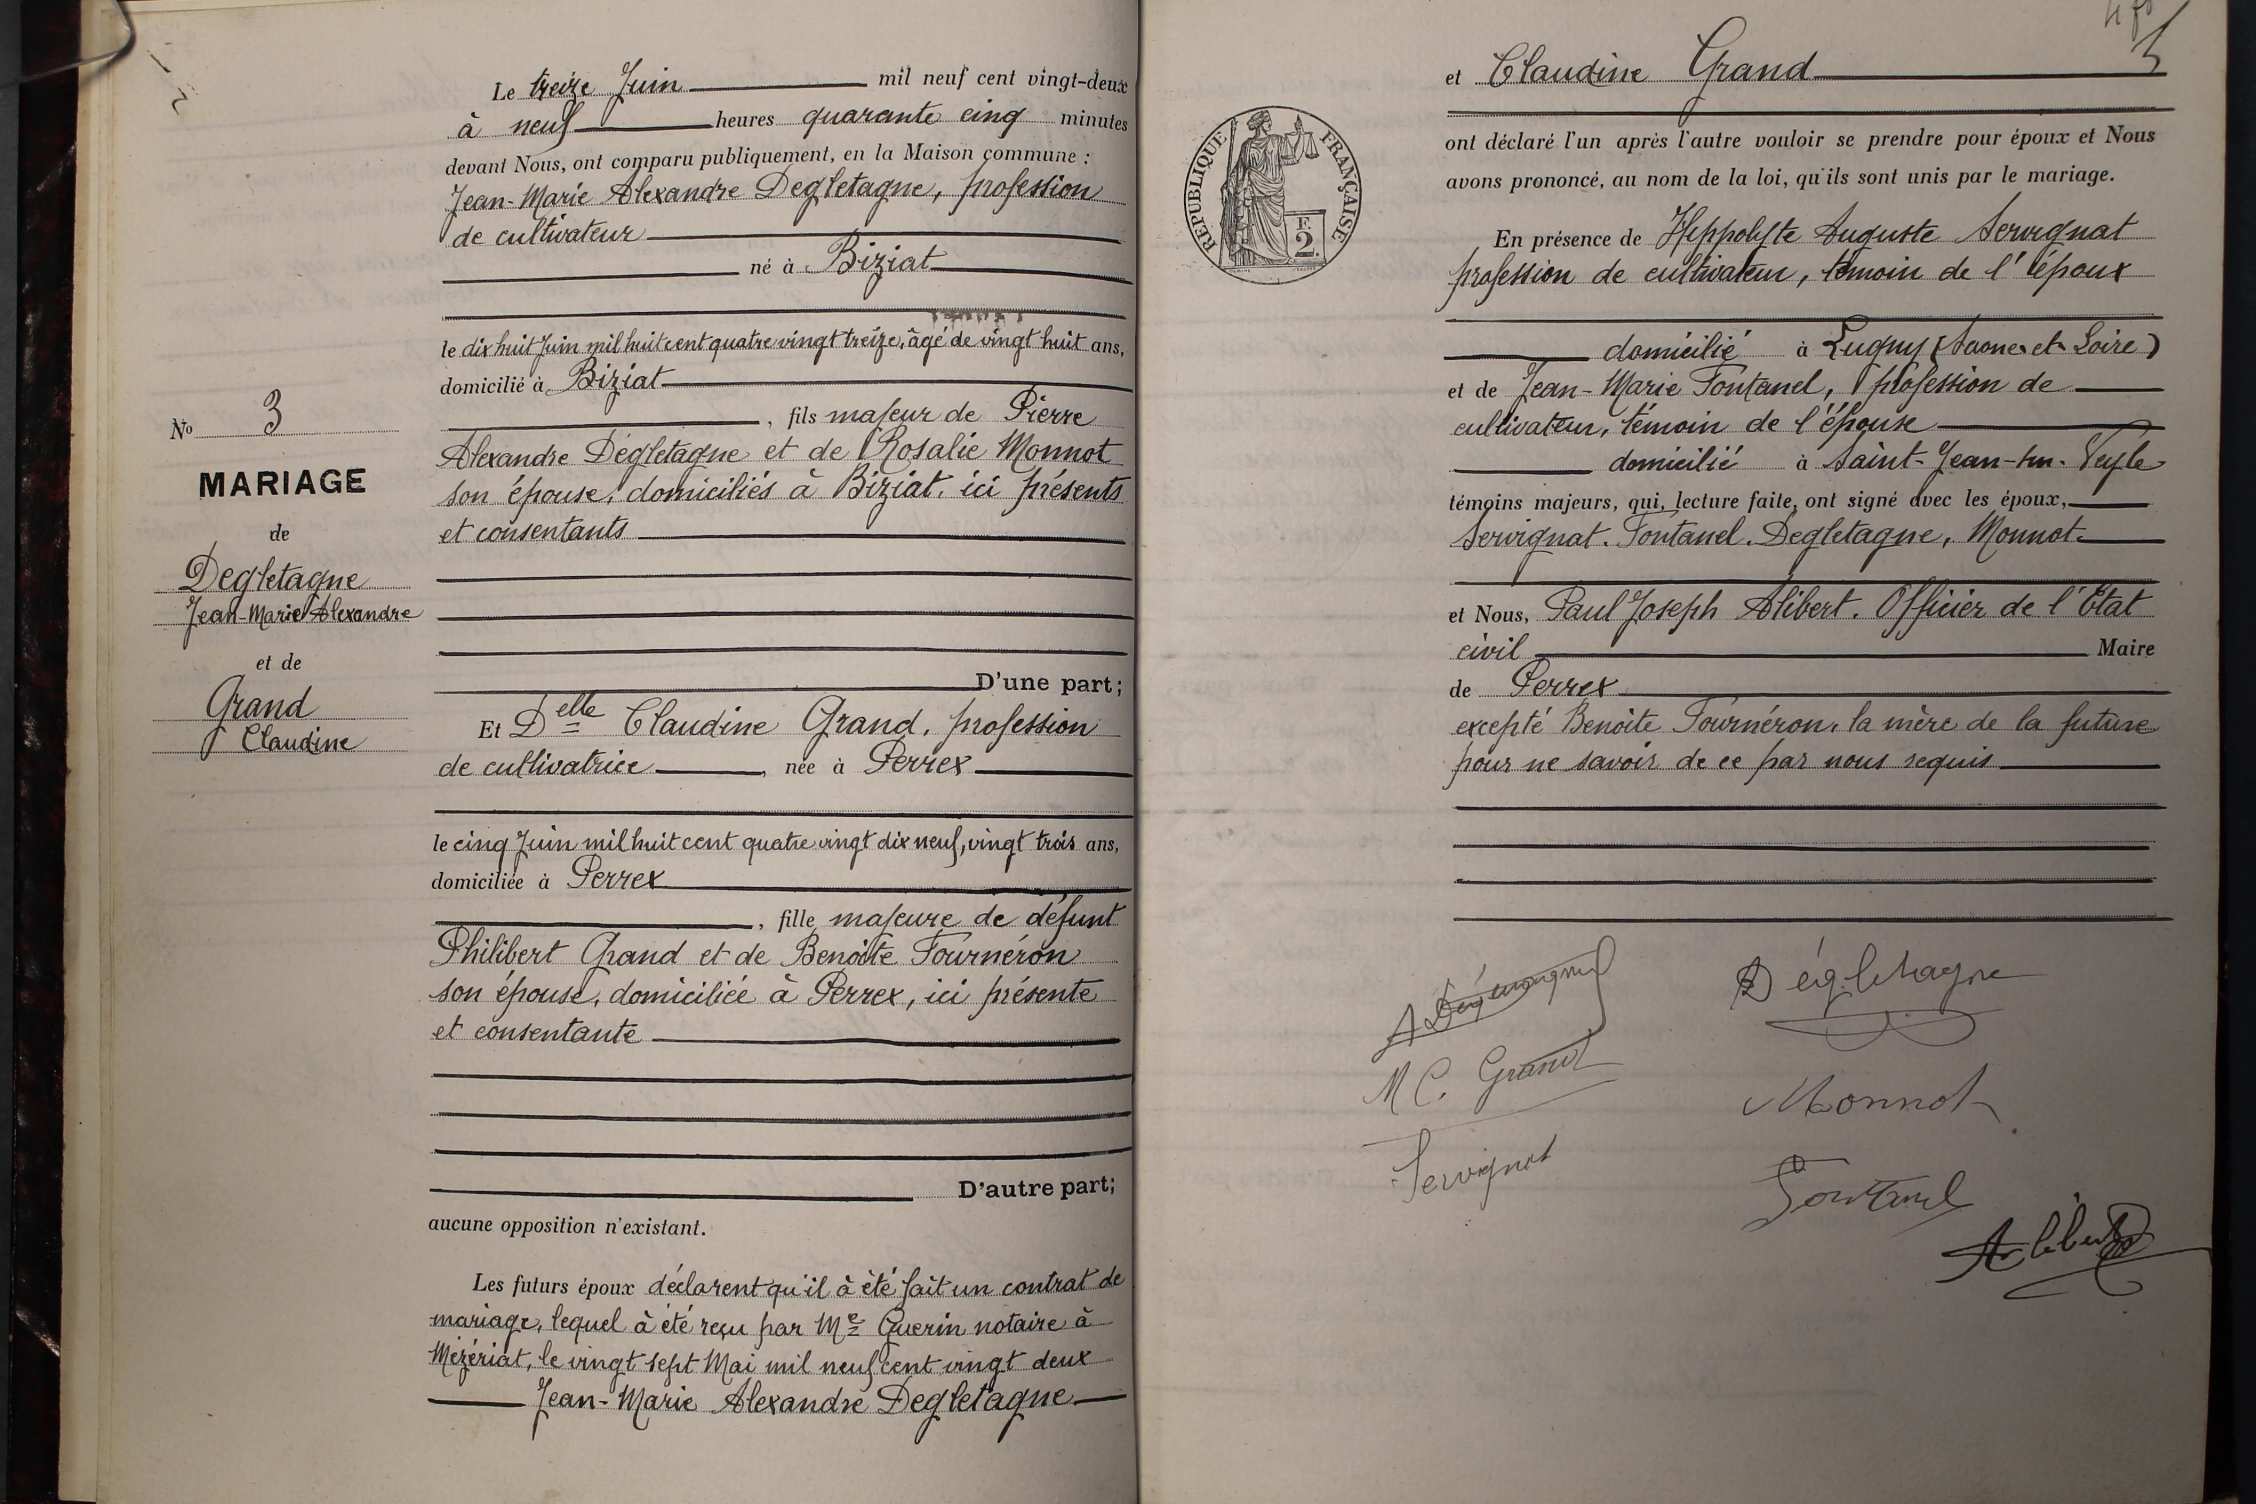 Le treize Juin mil neuf cent vingt-deux
à neuf heures quarante cinq minutes
devant Nous, ont comparu publiquement, en la Maison commune :
Jean-Marie Alexandre Degletagne, profession
de cultivateur
né à Biziat
le dix huit Juin mil huit cent quatre vingt treize, âgé de vingt huit ans,
domicilié à Biziat
, fils majeur de Pierre
Alexandre Dégletagne et de Rosalie Monnot
son épouse, domiciliés à Biziat, ici présents
et consentants
D'une part;
No 3
MARIAGE
de
Degletagne
Jean-Marie Alexandre
et de
Grand
Claudine
Et Delle Claudine Grand, profession
de cultivatrice, née à Perrex
le cinq Juin mil huit cent quatre vingt dix neuf, vingt trois ans,
domiciliée à Perrex
, fille majeure de défunt
Philibert Grand et de Benoite Fournéron
son épouse, domiciliée à Perrex, ici présente
et consentante
D'autre part;
aucune opposition n'existant.
Les futurs époux déclarent qu'il à été fait un contrat de
mariage, lequel à été reçu par Me Guerin notaire à
Mézériat, le vingt sept Mai mil neuf cent vingt deux
Jean-Marie Alexandre Degletagne
et Claudine Grand
RÉPUBLIQUE FRANÇAISE
F.
2.
ont déclaré l'un après l'autre vouloir se prendre pour époux et Nous
avons prononcé, au nom de la loi, qu'ils sont unis par le mariage.
En présence de Hippolyte Auguste Servignat
profession de cultivateur, témoin de l'époux
domicilié à Lugny (Saone-et-Loire)
et de Jean-Marie Fontanel, profession de
cultivateur, témoin de l'épouse
domicilié à Saint-Jean-sur-Veyle
témoins majeurs, qui, lecture faite, ont signé avec les époux,
Servignat. Fontanel. Degletagne, Monnot.
et Nous, Paul Joseph Alibert. Officier de l'Etat
civil Maire
de Perrex
excepté Benoite Fournéron, la mère de la future
pour ne savoir de ce par nous requis
Dégletagne
M C. Grand
Monnot
Servignat
Fontanel
Alibert